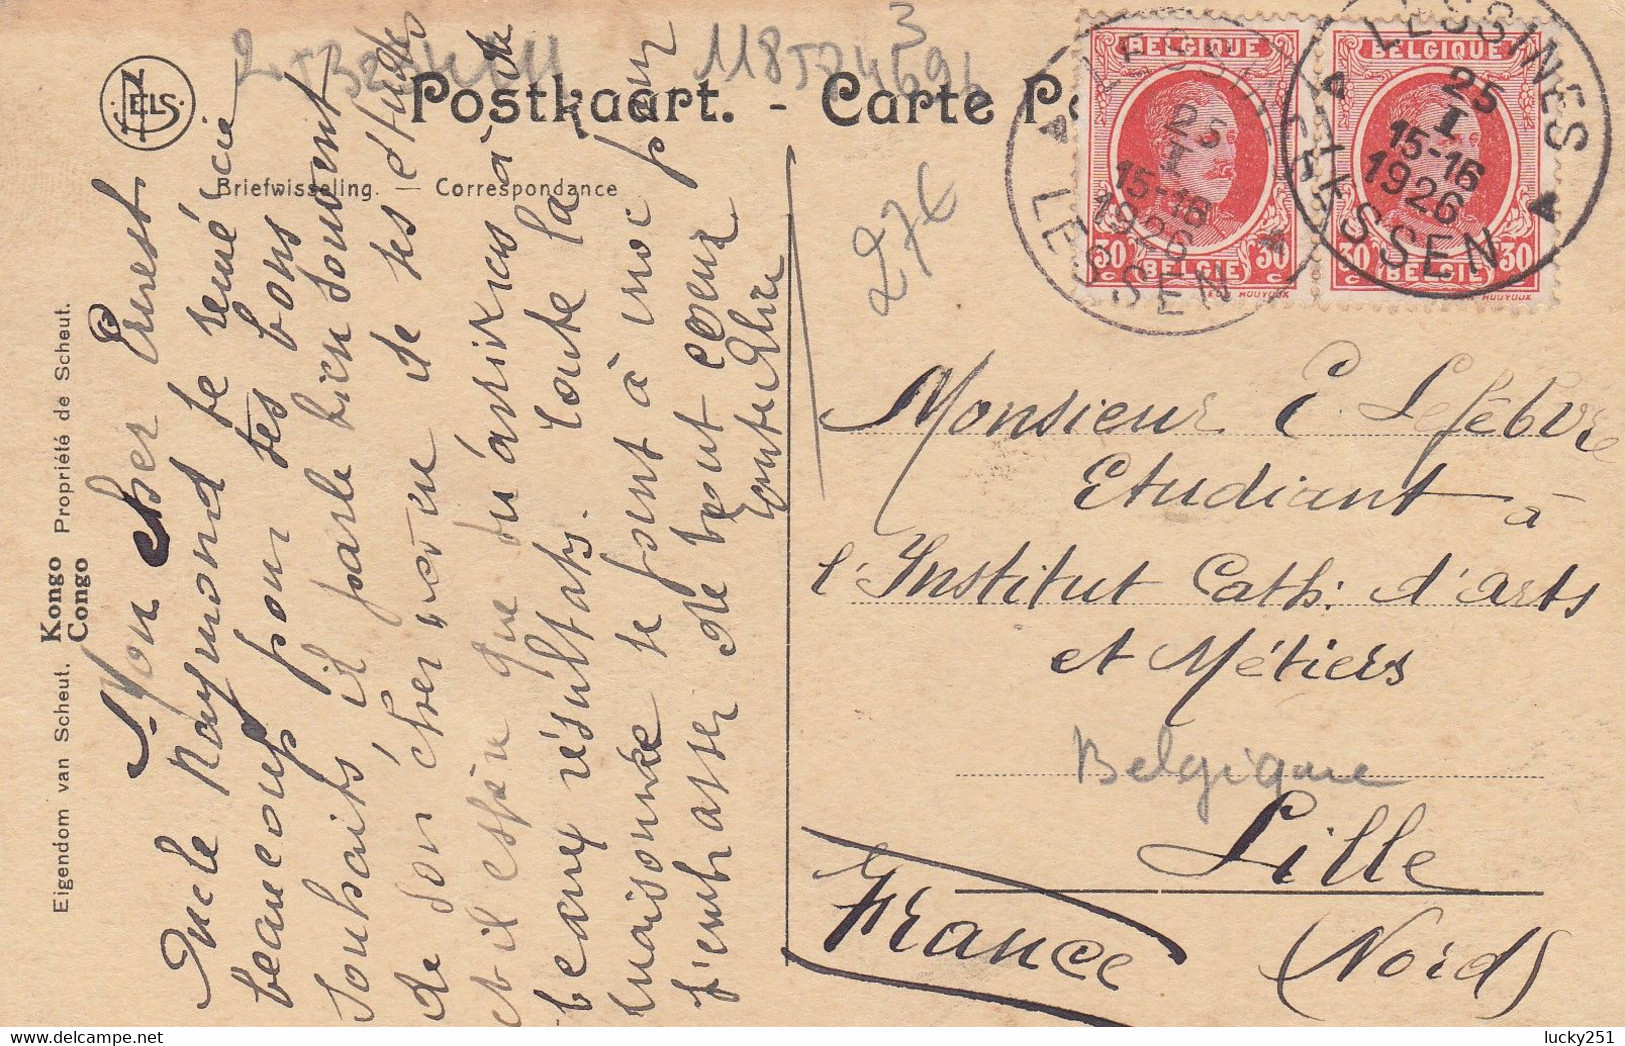 Postkaart. - Carte Po
Briefwisseling. — Correspondance
NELS
Eigendom van Scheut. Kongo Propriété de Scheut.
Congo
Mon cher Ernest
Oncle Raymond te remércie
beaucoup pour tes bons
souhaits il parle bien souvent
de son cher neveu de ses études
et il espère que tu arriveras à de
beaux résultats. Toute la
maisonnée se joint à moi pour
t'embrasser de tout coeur
BELGIQUE
30 30
BELGIE
J. HOUYOUX
BELGIQUE
30 30
BELGIE
HOUYOUX
LESSINES
25
I
15-16
1926
LESSEN
LESSINES
25
I
15-16
1926
LESSEN
27€
Monsieur E. Lefèbvre
Etudiant à
l'Institut Cath. d'arts
et Métiers
Belgique
Lille
France (Nord)
lucky251